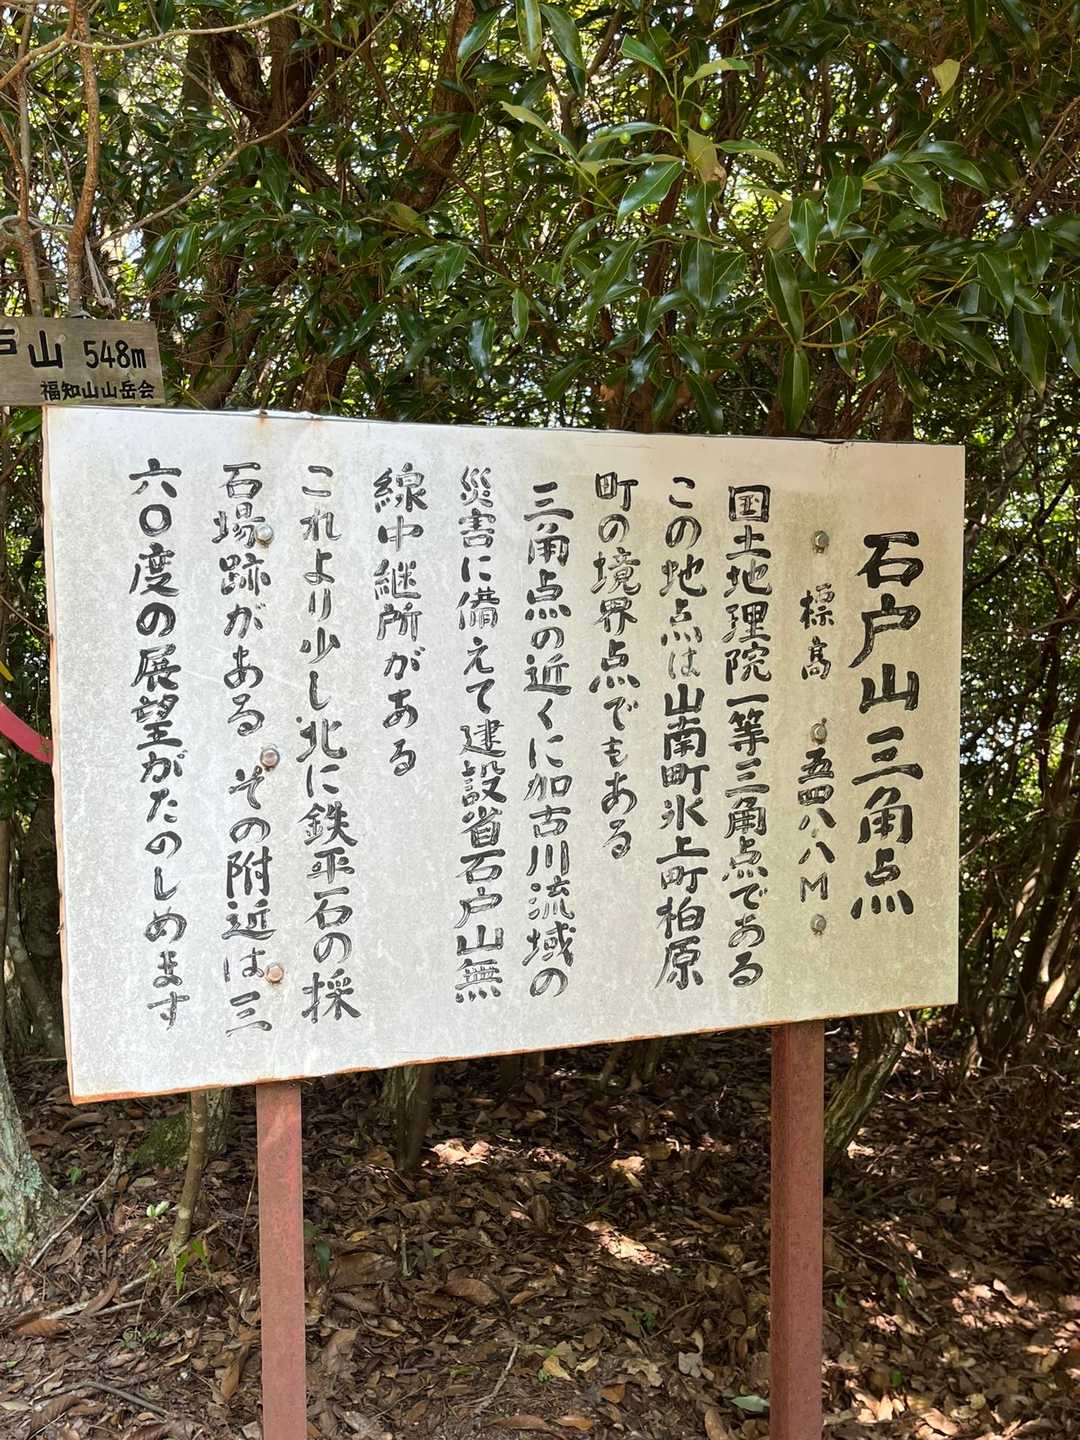 戸山 548m
福知山山岳会
石戸山三角点
標高 五四八・八M
国土地理院一等三角点である
この地点は山南町氷上町柏原
町の境界点でもある
三角点の近くに加古川流域の
災害に備えて建設省石戸山無
線中継所がある
これより少し北に鉄平石の採
石場跡がある その附近は三
六〇度の展望がたのしめます